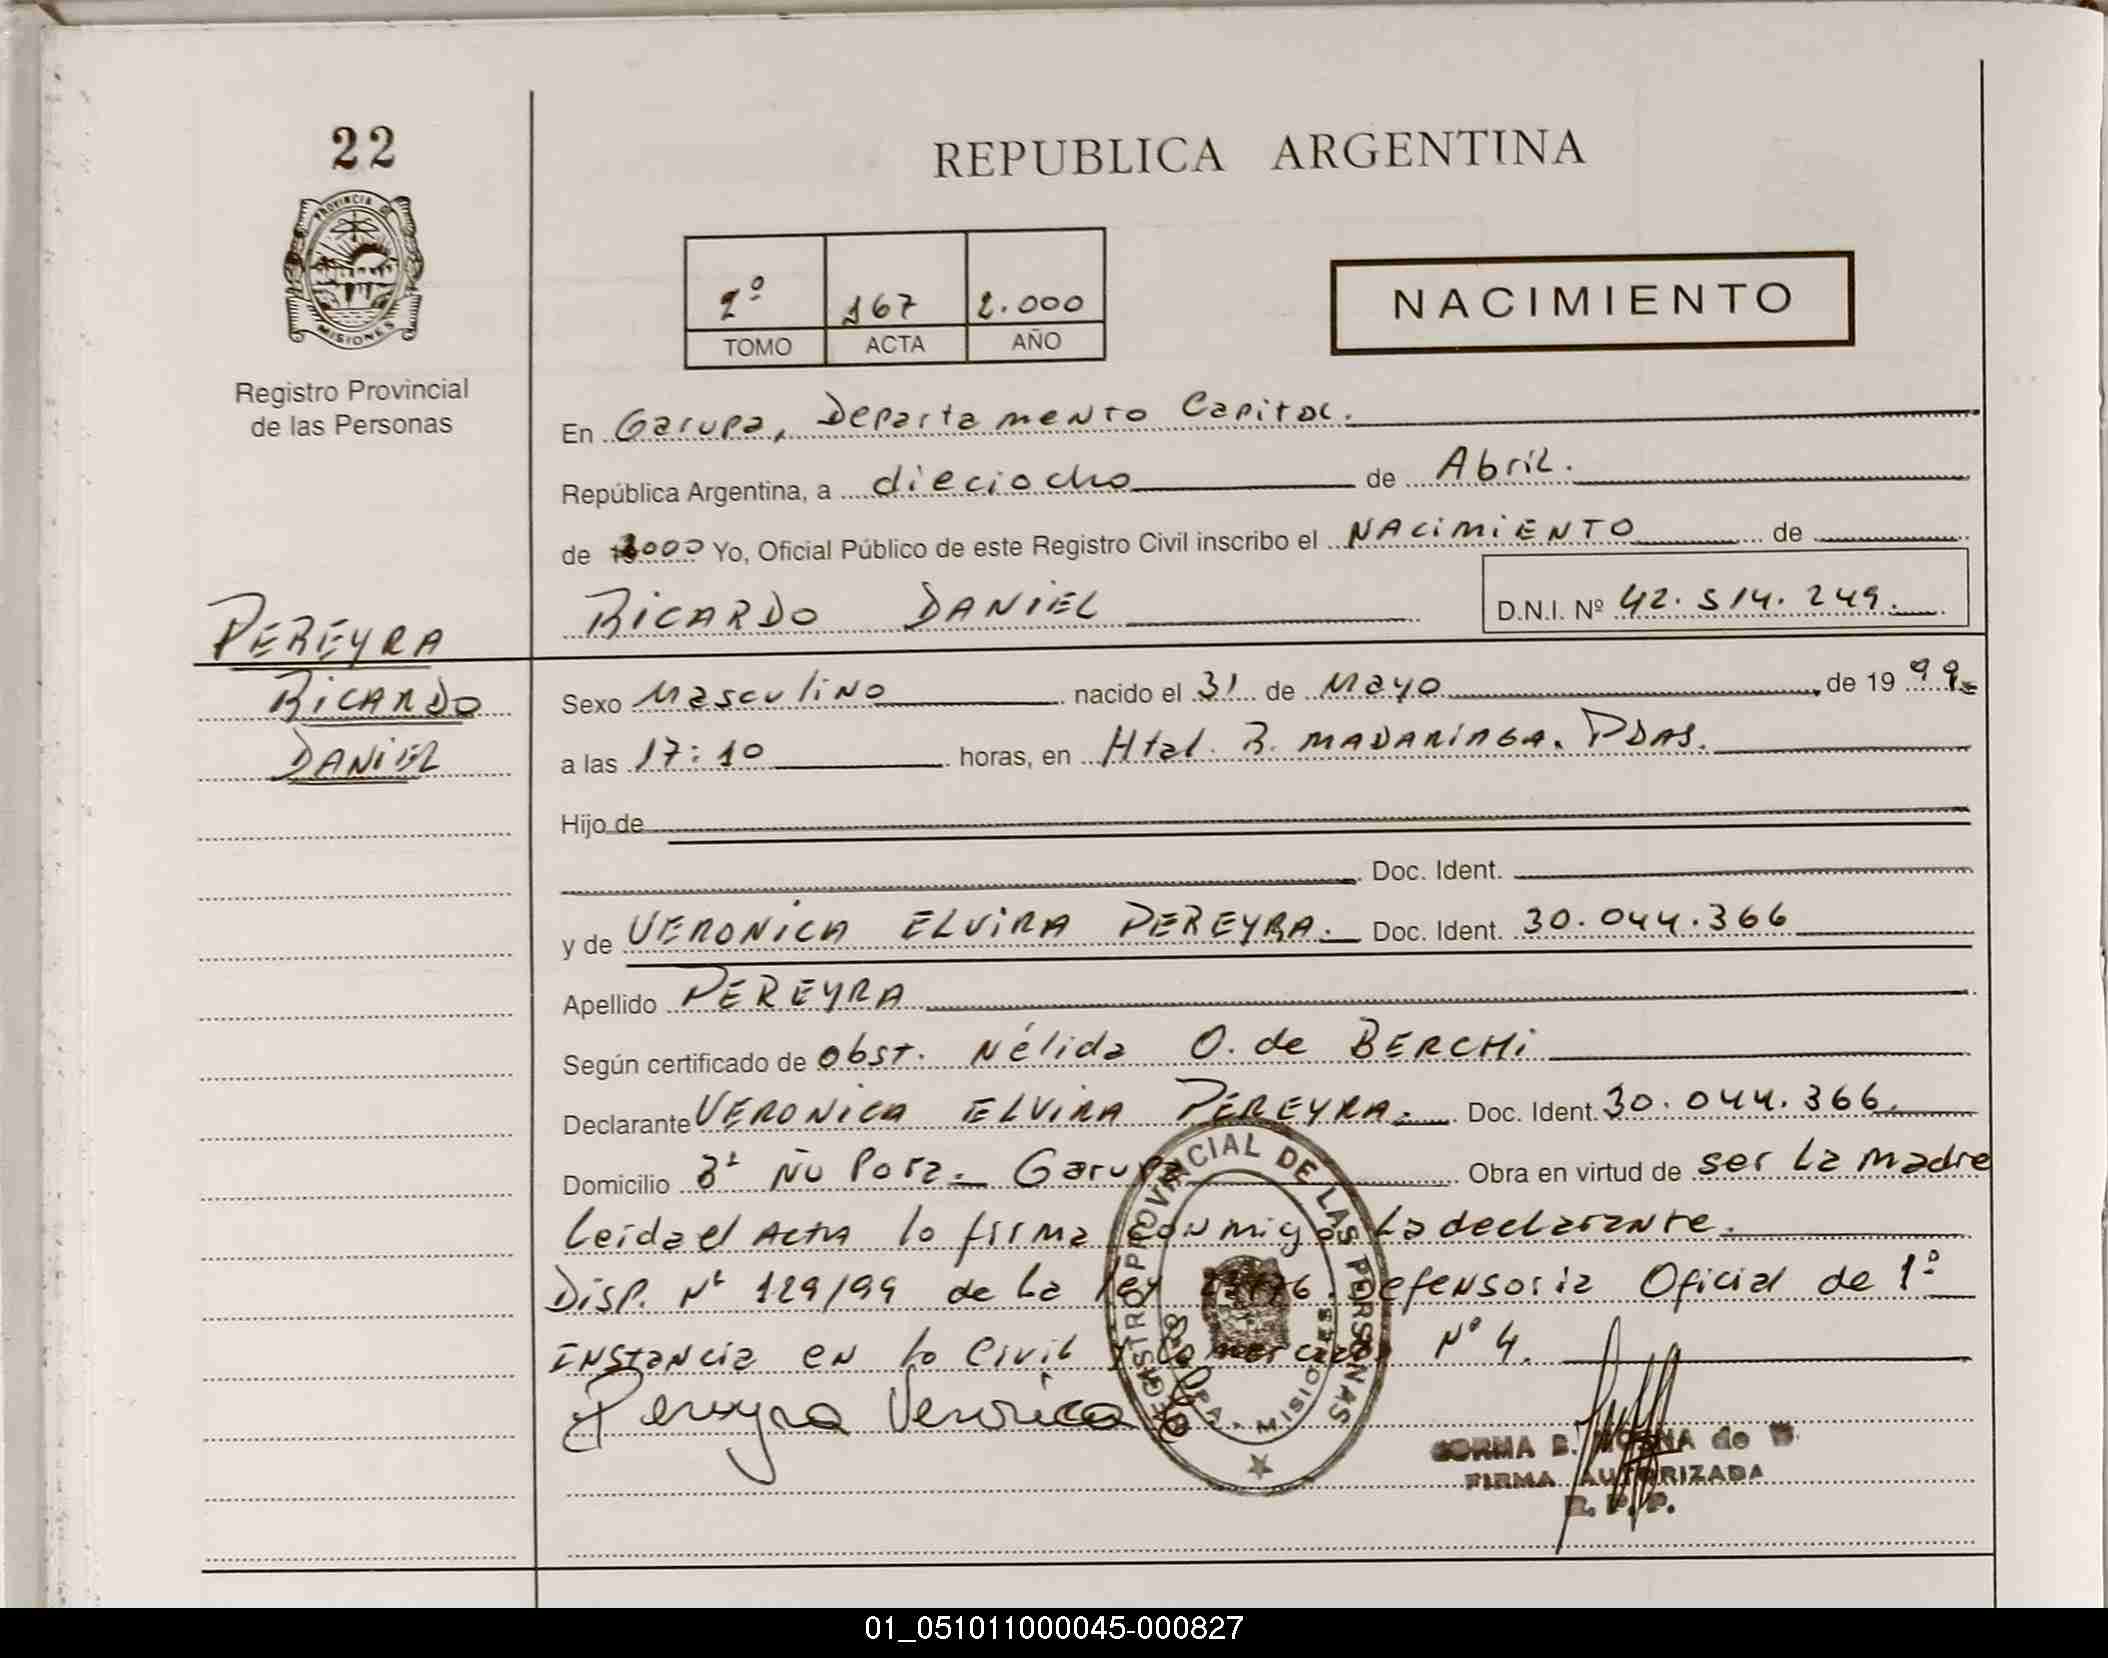 22
REPUBLICA ARGENTINA
PROVINCIA DE
MISIONES
Registro Provincial
de las Personas
2º 167 2.000
TOMO ACTA AÑO
NACIMIENTO
En Garupa, Departamento Capital.
República Argentina, a dieciocho de Abril.
de 2000 Yo, Oficial Público de este Registro Civil inscribo el NACIMIENTO de
RICARDO DANIEL D.N.I. Nº 42.514.249.
PEREYRA
RICARDO
DANIEL
Sexo Masculino nacido el 31 de Mayo de 1999
a las 17:10 horas, en Htal. R. MADARIAGA. PDAS.
Hijo de
Doc. Ident.
y de VERONICA ELVIRA PEREYRA. Doc. Ident. 30.044.366
Apellido PEREYRA
Según certificado de obst. Nélida O. de BERCHI
Declarante VERONICA ELVIRA PEREYRA. Doc. Ident. 30.044.366.
Domicilio Bº Ñu Pora. Garupa Obra en virtud de ser la madre
Leida el Acta lo firma conmigo la declarante.
Disp. Nº 129/99 de la ley Defensoria Oficial de 1º
Instancia en lo Civil y Comercial Nº 4.
Pereyra Veronica
REGISTRO PROVINCIAL DE LAS PERSONAS
MISIONES
NORMA B. de
FIRMA AUTORIZADA
R. P. P.
01_051011000045-000827